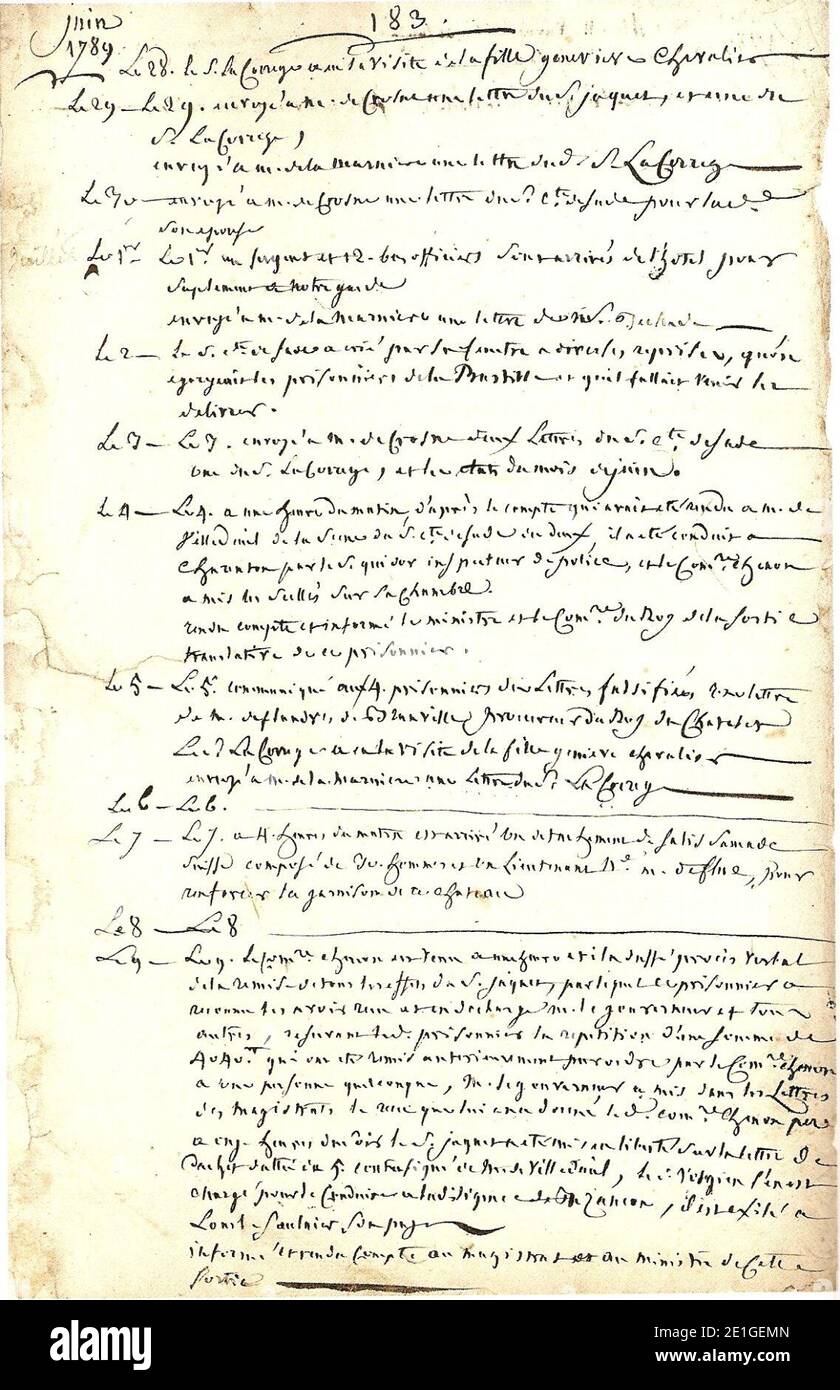 juin
1789
183.
Le 28. le S. La Correge a eu la visite de la fille genevieve Chevalier
Le 29 — Le 29. envoyé a m. de Crosne une lettre du S. jaquet, et une du
S. La Correge,
envoyé a m. de la marniere une lettre dud. S. La Correge
Le 30 — envoyé a m. de Crosne une lettre du S. Cte. de sade pour lad.
son epouse
Le 1er Le 1er un sergent et 12. bas officiers sont arrivés de l'hotel pour
suplement a notre garde
envoyé a m. de la marniere une lettre du
Le 2 — Le S. cte. de sade a crié par sa fenetre a diverses reprises, qu'on
egorgeait les prisonniers de la Bastille et qu'il fallait venir les
delivrer.
Le 3 — Le 3. envoyé a m. de Crosne deux Lettres du S. Cte. de sade
une du S. La Correge, et les etats du mois de juin.
Le 4 — Le 4. a une heure du matin, d'après le compte qui avait eté rendu a m. de
Villedeuil de la scene du S. cte. de sade du deux, il a eté conduit a
Charenton par le S. quidor inspecteur de police, et le Comre. chenon
a mis les scellés sur sa Chambre.
rendu compte et informé le ministre et le Comre. du Roy de la sortie
translative de ce prisonnier.
Le 5 — Le 5. communiqué aux 4. prisonniers des Lettres falsifiées une lettre
de m. de flandres de Brunville procureur du Roy du Chatelet
Le S. La Correge a eu la visite de la fille genevieve chevalier
envoyé a m. de la marniere une Lettre du S. La Correge
Le 6 — Le 6.
Le 7 — Le 7. a 4. heures du matin est arrivé un detachement de salis samade
suisse composé de 30. hommes et un Lieutenant No. m. deflue, pour
renforcer la garnison de ce chateau
Le 8 — Le 8
Le 9 — Le 9. Le Comre. chenon est venu a onze heures et il a dressé procès verbal
de la remise de tous les effets du S. jaquet, par lequel ce prisonnier a
reconnu les avoir reçu et en decharge m. le gouverneur et tous
autres, reservant led. prisonnier la repetition d'une somme de
4040.tt qui ont eté remis anterieurement par ordre par le Comre. chenon
a une personne quelconque, m. le gouverneur a mis dans les Lettres
des magistrats le reçu que lui en a donné led. S. comre. Chenon pere
a onze heures du soir le S. jaquet a eté mis en liberté sur la lettre de
Cachet datée du 5. contresigné de m. de Villedeuil, le S. s'est
chargé pour le conduire a la diligence de Bezancon, il est exilé a
Lons-le-Saulnier son pays
informé et rendu compte au magistrat et au ministre de cette
sortie
alamy
Image ID: 2E1GEMN
www.alamy.com